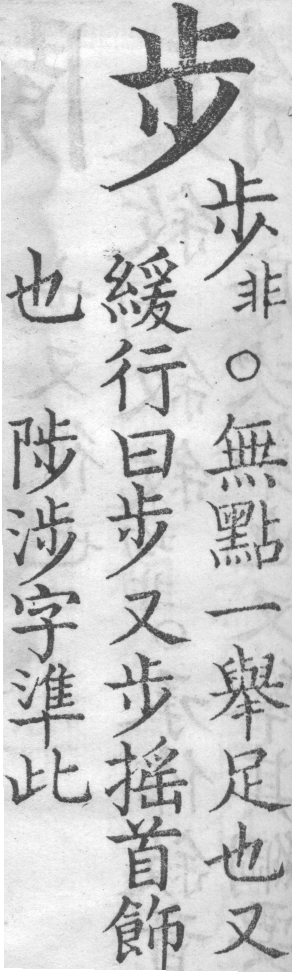 步
歩非○無點一舉足也又
緩行曰步又步搖首飾
也 陟涉字準此